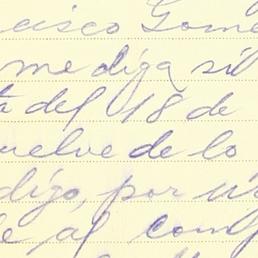 cisco Gome
me diga si l
ta del 18 de
uelve de lo
digo, por u
e al com